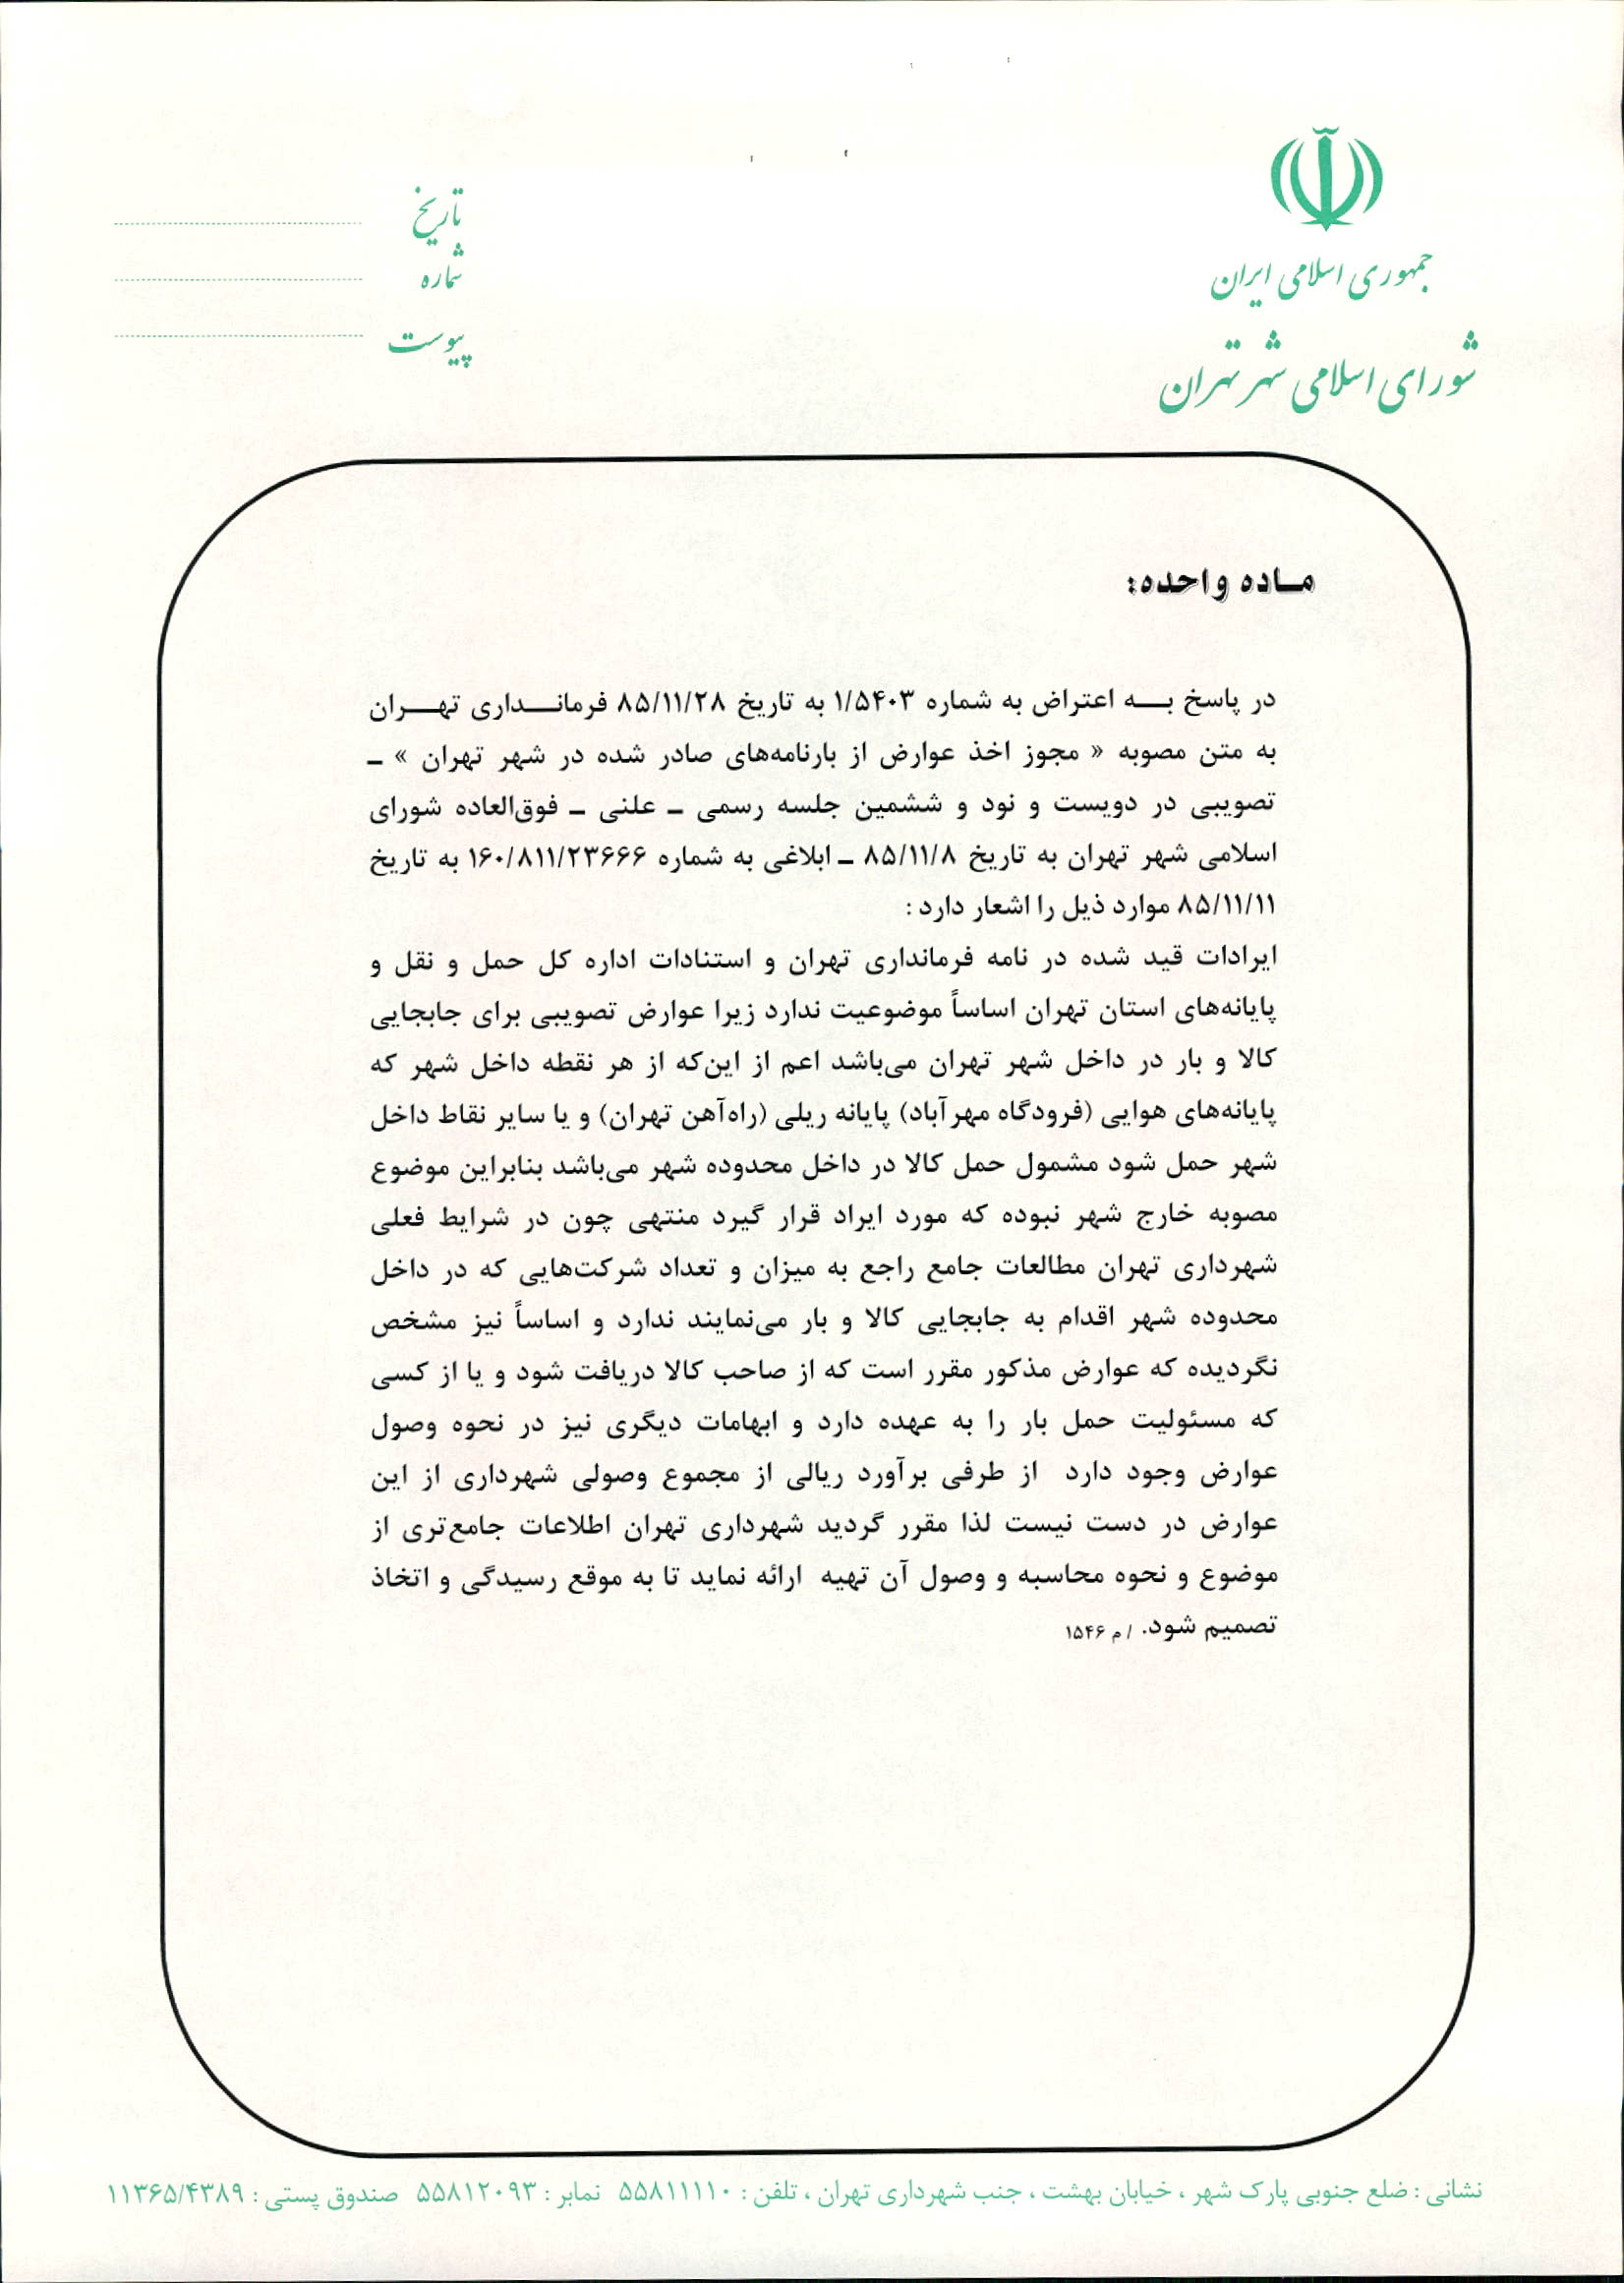 جمهوری اسلامی ایران
شورای اسلامی شهر تهران
تاریخ
شماره
پیوست
ماده واحده:
در پاسخ به اعتراض به شماره ۱/۵۴۰۳ به تاریخ ۸۵/۱۱/۲۸ فرمانداری تهران
به متن مصوبه « مجوز اخذ عوارض از بارنامه‌های صادر شده در شهر تهران » ـ
تصویبی در دویست و نود و ششمین جلسه رسمی ـ علنی ـ فوق‌العاده شورای
اسلامی شهر تهران به تاریخ ۸۵/۱۱/۸ ـ ابلاغی به شماره ۱۶۰/۸۱۱/۲۳۶۶۶ به تاریخ
۸۵/۱۱/۱۱ موارد ذیل را اشعار دارد :
ایرادات قید شده در نامه فرمانداری تهران و استنادات اداره کل حمل و نقل و
پایانه‌های استان تهران اساساً موضوعیت ندارد زیرا عوارض تصویبی برای جابجایی
کالا و بار در داخل شهر تهران می‌باشد اعم از این‌که از هر نقطه داخل شهر که
پایانه‌های هوایی (فرودگاه مهرآباد) پایانه ریلی (راه‌آهن تهران) و یا سایر نقاط داخل
شهر حمل شود مشمول حمل کالا در داخل محدوده شهر می‌باشد بنابراین موضوع
مصوبه خارج شهر نبوده که مورد ایراد قرار گیرد منتهی چون در شرایط فعلی
شهرداری تهران مطالعات جامع راجع به میزان و تعداد شرکت‌هایی که در داخل
محدوده شهر اقدام به جابجایی کالا و بار می‌نمایند ندارد و اساساً نیز مشخص
نگردیده که عوارض مذکور مقرر است که از صاحب کالا دریافت شود و یا از کسی
که مسئولیت حمل بار را به عهده دارد و ابهامات دیگری نیز در نحوه وصول
عوارض وجود دارد از طرفی برآورد ریالی از مجموع وصولی شهرداری از این
عوارض در دست نیست لذا مقرر گردید شهرداری تهران اطلاعات جامع‌تری از
موضوع و نحوه محاسبه و وصول آن تهیه ارائه نماید تا به موقع رسیدگی و اتخاذ
تصمیم شود. / م ۱۵۴۶
نشانی : ضلع جنوبی پارک شهر ، خیابان بهشت ، جنب شهرداری تهران ، تلفن : ۵۵۸۱۱۱۱۰ نمابر : ۵۵۸۱۲۰۹۳ صندوق پستی : ۱۱۳۶۵/۴۳۸۹